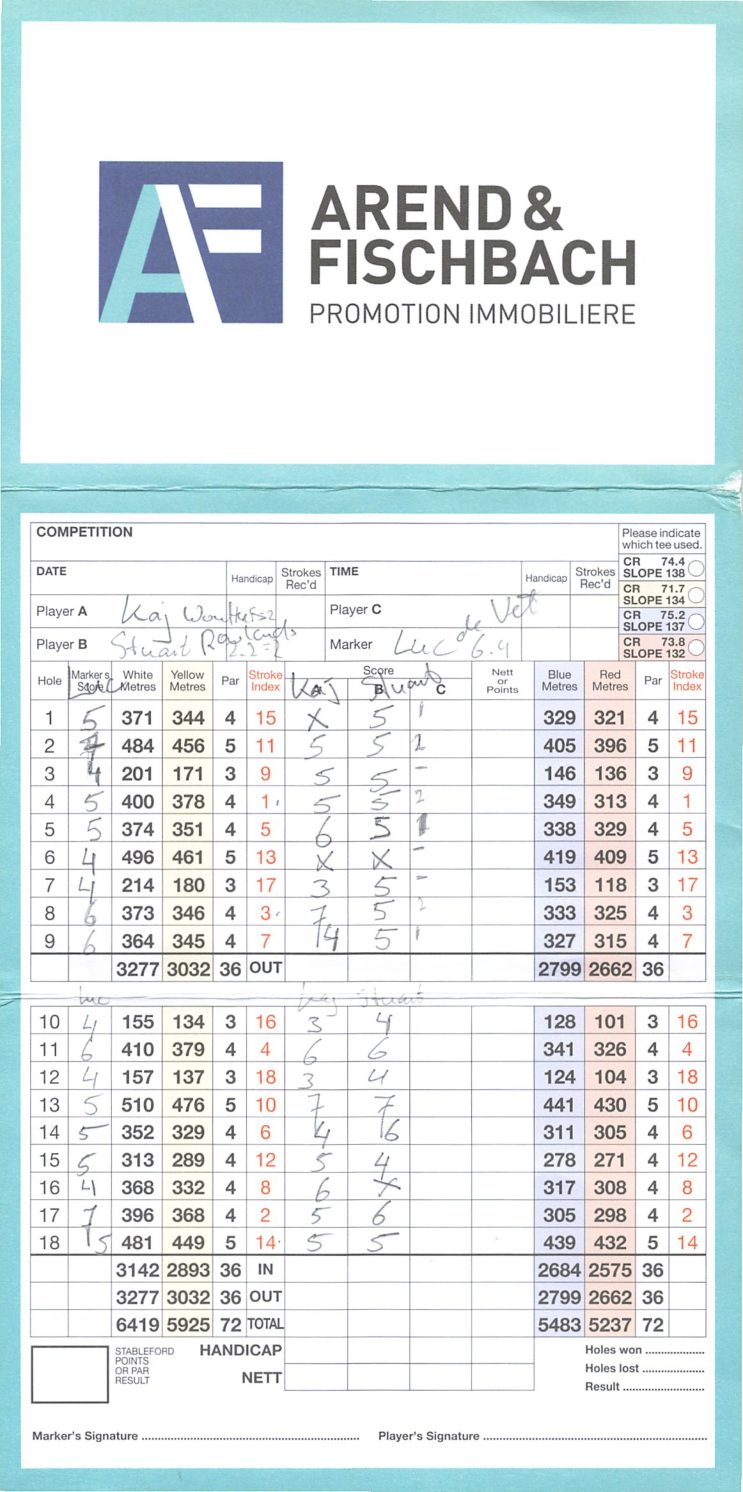 AF
AREND &
FISCHBACH
PROMOTION IMMOBILIERE
COMPETITION
Please indicate which tee used.
DATE Handicap Strokes Rec'd TIME Handicap Strokes Rec'd
CR 74.4 SLOPE 138
CR 71.7 SLOPE 134
Player A Kaj Player C
CR 75.2 SLOPE 137
Player B Stuart Rowlands 2.2=2 Marker Luc de Vet 6.4
CR 73.8 SLOPE 132
Hole Marker's Score Luc White Metres Yellow Metres Par Stroke Index Score A Kaj B Stuart C Nett or Points Blue Metres Red Metres Par Stroke Index
1 5 371 344 4 15 X 5 1 329 321 4 15
2 484 456 5 11 5 5 2 405 396 5 11
3 4 201 171 3 9 5 5 - 146 136 3 9
4 5 400 378 4 1 5 5 2 349 313 4 1
5 5 374 351 4 5 6 5 1 338 329 4 5
6 4 496 461 5 13 X X - 419 409 5 13
7 4 214 180 3 17 3 5 - 153 118 3 17
8 6 373 346 4 3 7 5 2 333 325 4 3
9 6 364 345 4 7 4 5 1 327 315 4 7
3277 3032 36 OUT 2799 2662 36
Luc Kaj Stuart
10 4 155 134 3 16 3 4 128 101 3 16
11 6 410 379 4 4 6 6 341 326 4 4
12 4 157 137 3 18 3 4 124 104 3 18
13 5 510 476 5 10 7 7 441 430 5 10
14 5 352 329 4 6 4 6 311 305 4 6
15 5 313 289 4 12 5 4 278 271 4 12
16 4 368 332 4 8 6 X 317 308 4 8
17 7 396 368 4 2 5 6 305 298 4 2
18 5 481 449 5 14 5 5 439 432 5 14
3142 2893 36 IN 2684 2575 36
3277 3032 36 OUT 2799 2662 36
6419 5925 72 TOTAL 5483 5237 72
STABLEFORD POINTS OR PAR RESULT HANDICAP Holes won ....................
Holes lost ....................
NETT Result ....................
Marker's Signature .................... Player's Signature ....................